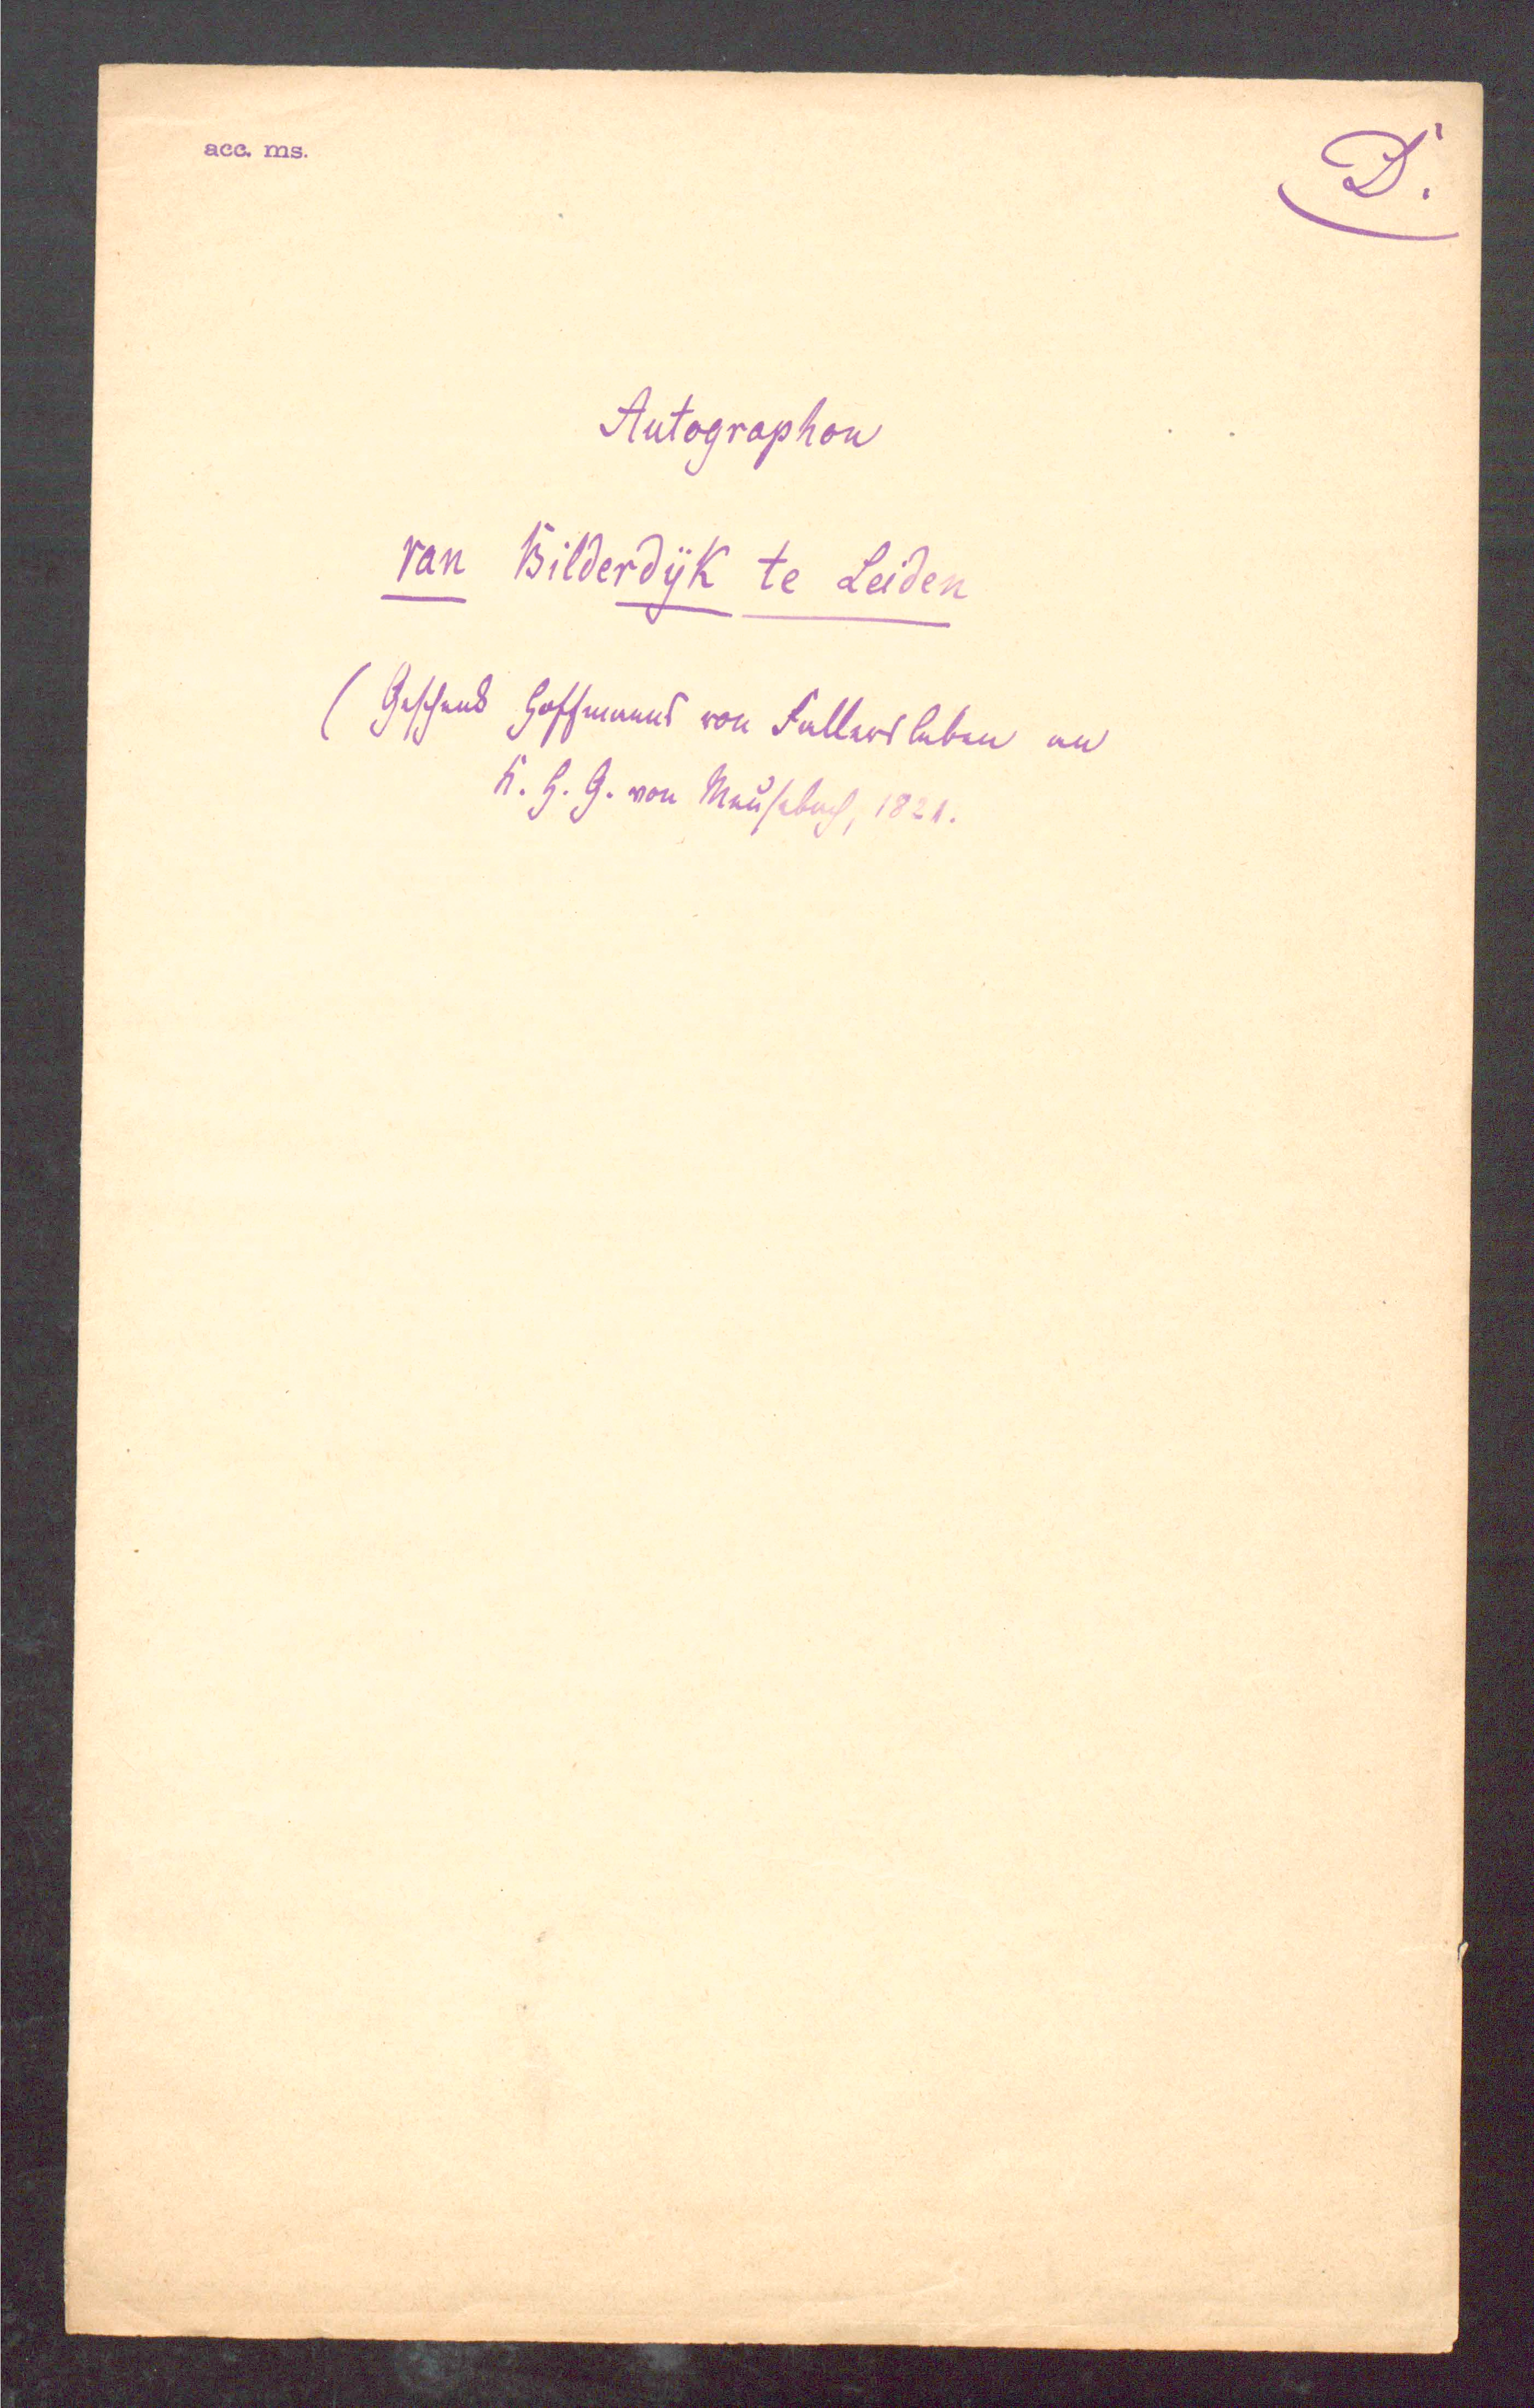 acc. ms.
D.
Autographon
van Bilderdijk te Leiden
(Geschenk Hoffmanns von Fallersleben an
K. H. G. von Meusebach, 1821.